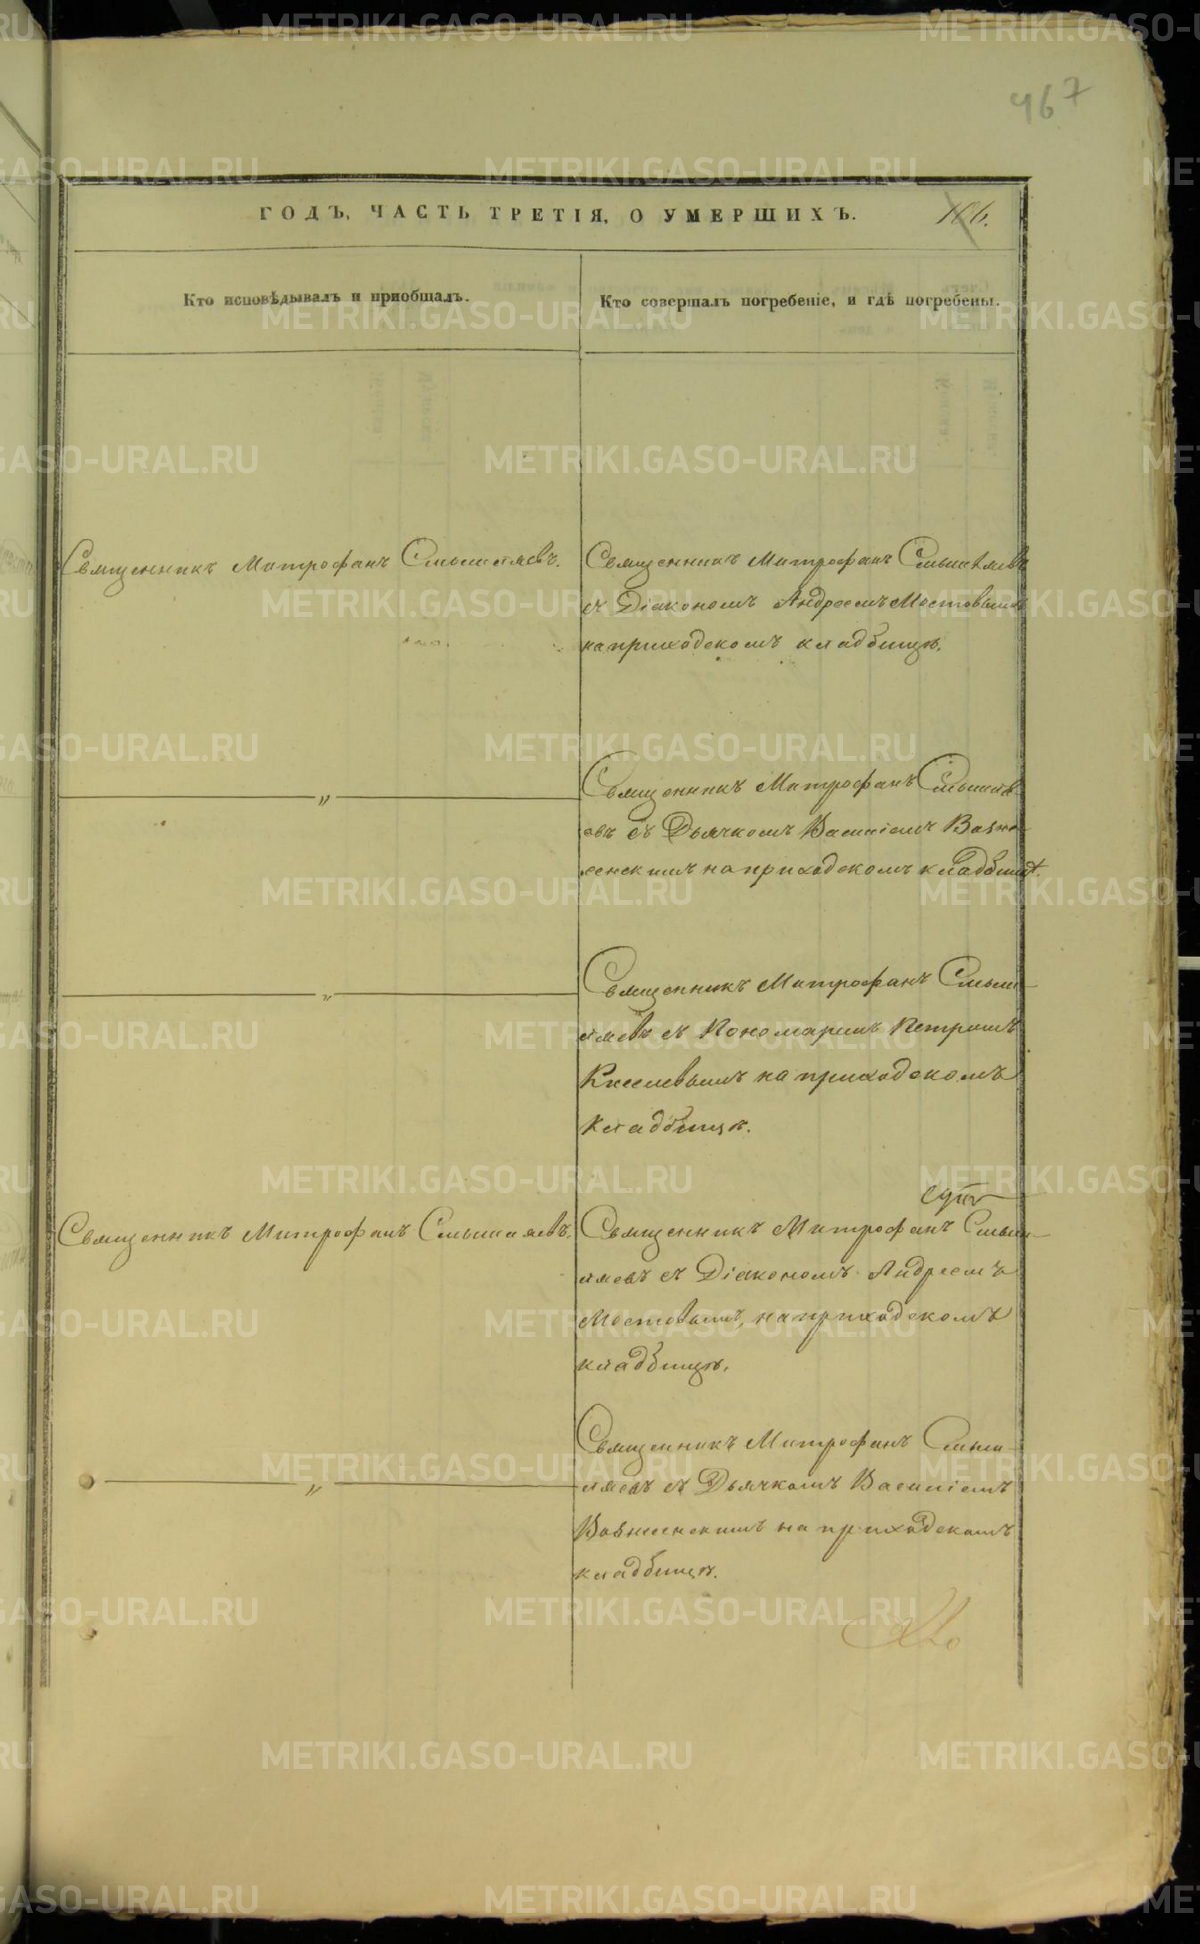 467
ГОДЪ, ЧАСТЬ ТРЕТІЯ, О УМЕРШИХЪ.
106.
Кто исповѣдывалъ и пріобщалъ.
Кто совершалъ погребеніе, и гдѣ погребены.
Священникъ Митрофанъ Смышляевъ.
Священникъ Митрофанъ Смышляевъ
съ Діакономъ Андреемъ Мостовымъ
на приходскомъ кладбищѣ.
"
Священникъ Митрофанъ Смышля-
евъ съ Дьячкомъ Василіемъ Возне-
сенскимъ на приходскомъ кладбищѣ.
"
Священникъ Митрофанъ Смыш-
ляевъ съ Пономаремъ Петромъ
Киселевымъ на приходскомъ
кладбищѣ.
Священникъ Митрофанъ Смышляевъ.
Священникъ Митрофанъ Смыш-
ляевъ съ Діакономъ Андреемъ
Мостовымъ, на приходскомъ
кладбищѣ.
"
Священникъ Митрофанъ Смыш-
ляевъ съ Дьячкомъ Василіемъ
Вознесенскимъ на приходскомъ
кладбищѣ.
METRIKI.GASO-URAL.RU